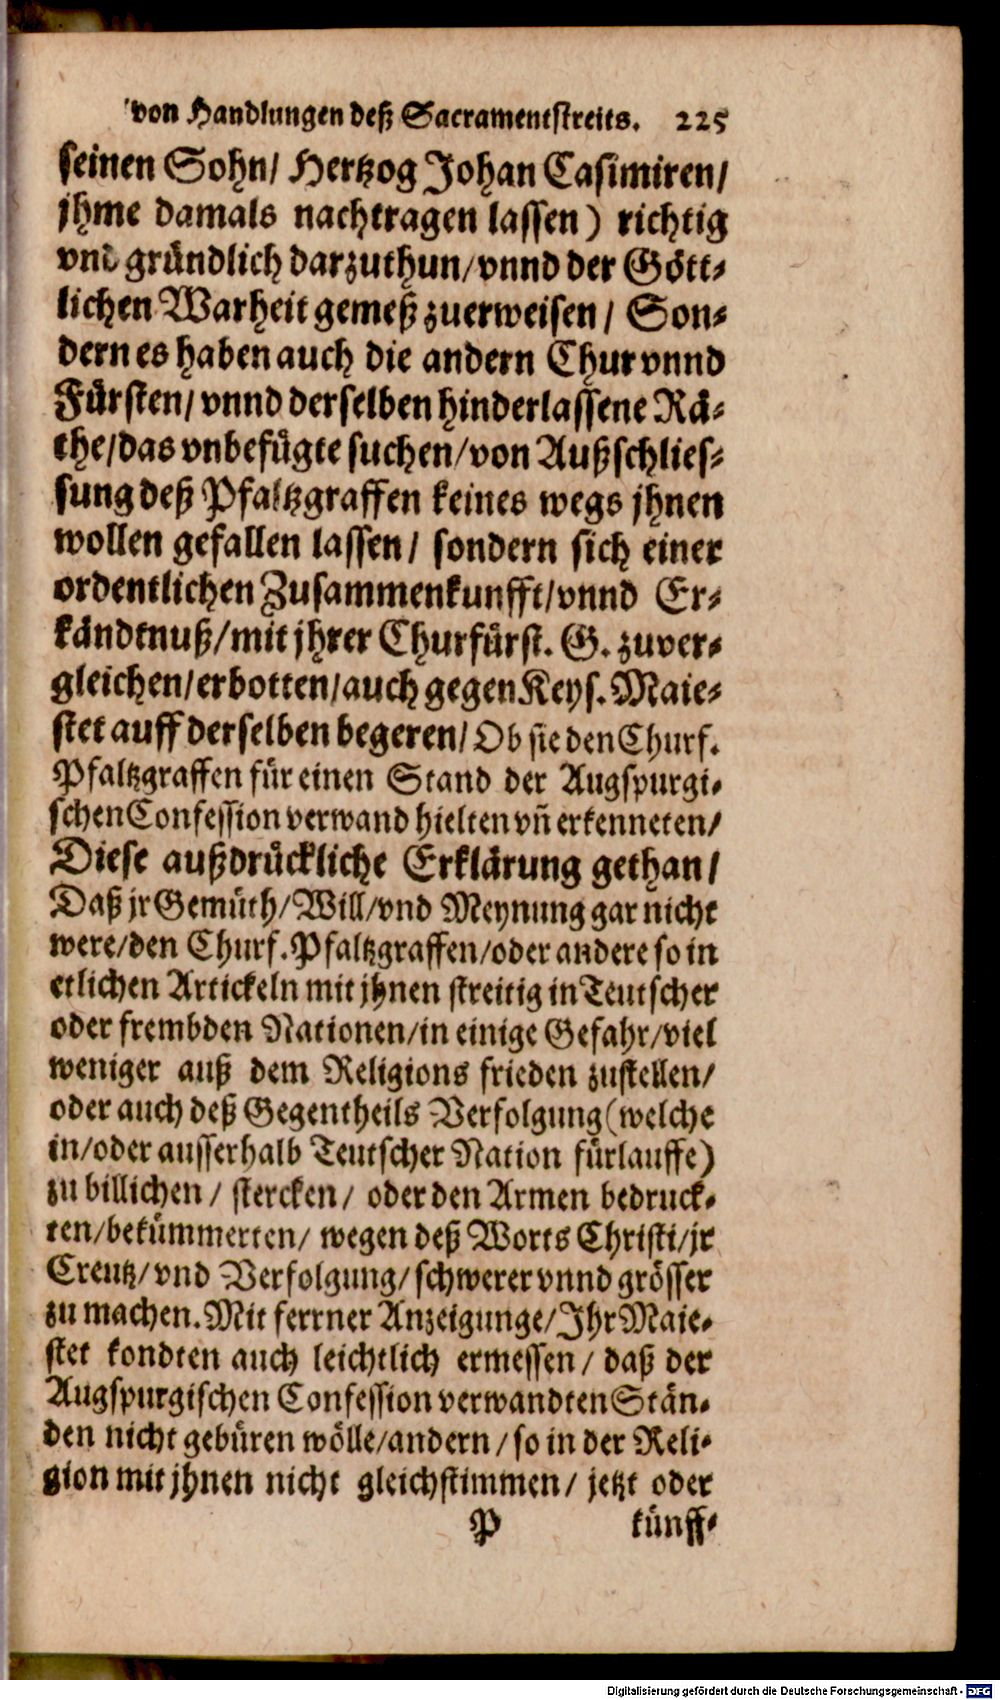 von Handlungen deß Sacramentstreits. 225
seinen Sohn/ Hertzog Johan Casimiren/
jhme damals nachtragen lassen) richtig
vnd gründlich darzuthun/vnnd der Gött-
lichen Warheit gemeß zuerweisen/ Son-
dern es haben auch die andern Chur vnnd
Fürsten/ vnnd derselben hinderlassene Rä-
the/das vnbefügte suchen/von Außschlies-
sung deß Pfaltzgraffen keines wegs jhnen
wollen gefallen lassen/ sondern sich einer
ordentlichen Zusammenkunfft/vnnd Er-
kändtnuß/mit jhrer Churfürst. G. zuver-
gleichen/erbotten/auch gegen Keys. Maie-
stet auff derselben begeren/ Ob sie den Churf.
Pfaltzgraffen für einen Stand der Augspurgi-
schen Confession verwand hielten vñ erkenneten/
Diese außdrückliche Erklärung gethan/
Daß jr Gemüth/Will/vnd Meynung gar nicht
were/den Churf.Pfaltzgraffen/oder andere so in
etlichen Artickeln mit jhnen streitig in Teutscher
oder frembden Nationen/in einige Gefahr/viel
weniger auß dem Religions frieden zustellen/
oder auch deß Gegentheils Verfolgung(welche
in/oder ausserhalb Teutscher Nation fürlauffe)
zu billichen/ stercken/ oder den Armen bedruck-
ten/bekümmerten/ wegen deß Worts Christi/jr
Creutz/vnd Verfolgung/schwerer vnnd grösser
zu machen. Mit ferrner Anzeigunge/Ihr Maie-
stet kondten auch leichtlich ermessen/ daß der
Augspurgischen Confession verwandten Stän-
den nicht gebüren wölle/andern/so in der Reli-
gion mit jhnen nicht gleichstimmen/ jetzt oder
P künff-
Digitalisierung gefördert durch die Deutsche Forschungsgemeinschaft - DFG